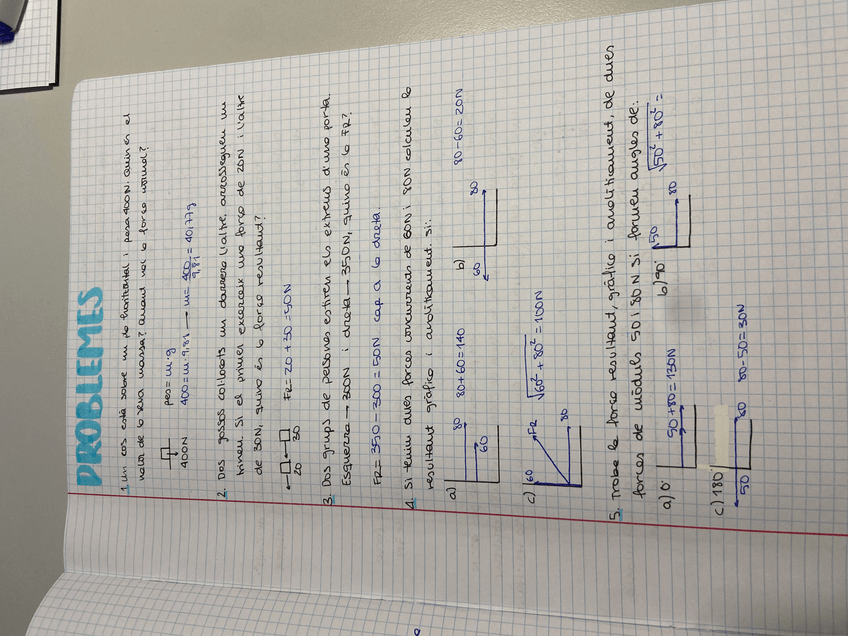 PROBLEMES
1. Un cos està sobre un pla horitzontal i pesa 400N. Quin és el
valor de la seva massa? Quant val la força normal?
pes = m·g
400 = m·9,81 → m = 400/9,81 = 40,77g
400N
2. Dos gossos col·locats un darrera l'altre, arrosseguen un
trineu. Si el primer excerceix una força de 20N i l'altre
de 30N, quina és la força resultand?
20 30
FR = 20 + 30 = 50N
3. Dos grups de persones estiren els extrems d'una porta.
Esquerra → 300N i dreta → 350N, quina és la FR?
FR = 350 - 300 = 50N cap a la dreta.
4. Si tenim dues forces concurrents de 60N i 80N calculeu la
resultant gràfica i analíticament si:
a) 80 60 80+60=140
b) 60 80 80-60=20N
c) 60 FR 80 √60²+80² = 100N
5. Troba la força resultand, gràfica i analíticament, de dues
forces de mòduls 50 i 80N si formen angles de:
a) 0° 50+80=130N
b) 90° 50 80 √50²+80² =
c) 180 50 80 80-50=30N